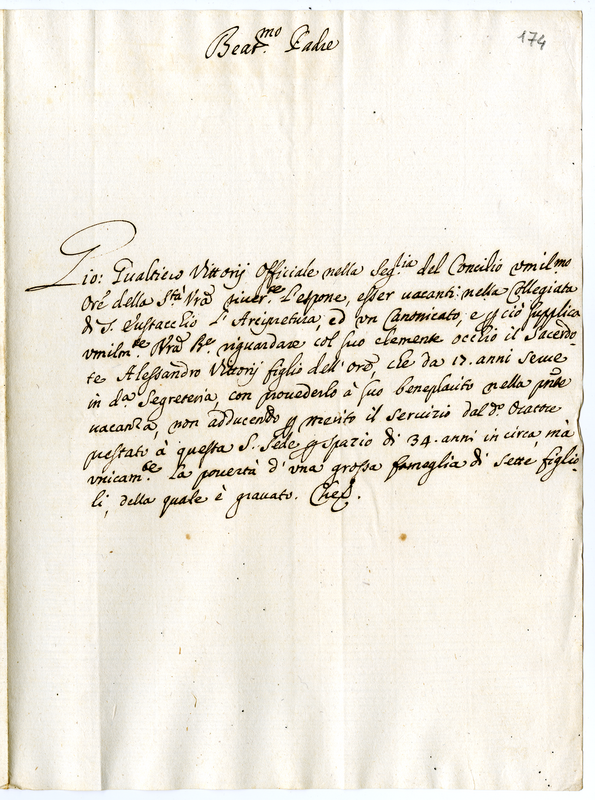 174
Beat.mo Padre
Gio: Gualtiero Vittorij Officiale nella Seg.ria del Concilio umil.mo
Ore della S.tà Vra river.te l'espone, esser vacanti nella Collegiata
di S. Eustacchio l'Arcipretura, ed un Canonicato, e p ciò supplica
umilm.te Vra B.e riguardare col suo clemente occhio il Sacerdo-
te Alessandro Vittorij figlio dell'ore, che da 17. anni serve
in d.a Segreteria, con provederlo à suo beneplacito nella pnte
vacanza, non adducendo p merito il servizio dal d.o Oratore
prestato à questa S. Sede p spazio di 34. anni in circa, mà
unicam.te la povertà d'una grossa fameglia di sette figlio-
li, della quale è gravato. Che